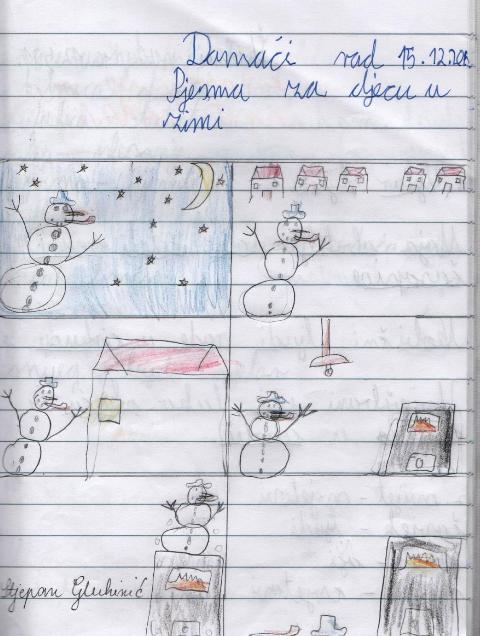 Damaći rad 15.12.
Pjesma za djecu u
zimi
Stjepan Gluhinić